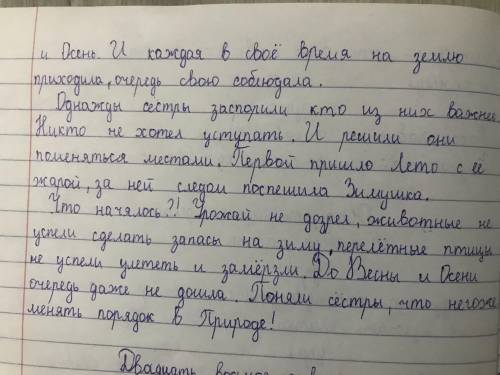 и Осень. И каждая в своё время на землю
приходила, очередь свою соблюдала.
Однажды сёстры заспорили кто из них важнее
Никто не хотел уступать. И решили они
поменяться местами. Первой пришло Лето с её
жарой, за ней следом поспешила Зимушка.
Что началось?! Урожай не дозрел, животные не
успели сделать запасы на зиму, перелётные птицы
не успели улететь и замёрзли. До Весны и Осени
очередь даже не дошла. Поняли сёстры, что негоже
менять порядок в Природе!
Двадцать